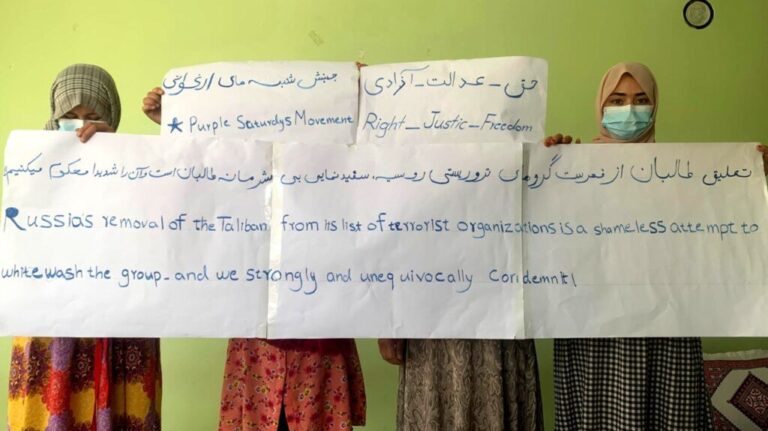 جنبش شنبه های ارغوانی
★ Purple Saturdys Movement
حق - عدالت - آزادی
Right_Justic_Freedom
تعلیق طالبان از فهرست گروهای تروریستی روسیه، سفیدنمایی بی شرمانه طالبان است و آن را شدیدا محکوم میکنیم!
Russia's removal of the Taliban from its list of terrorist organizations is a shameless attempt to
whitewash the group_ and we strongly and unequivocally condemn it!